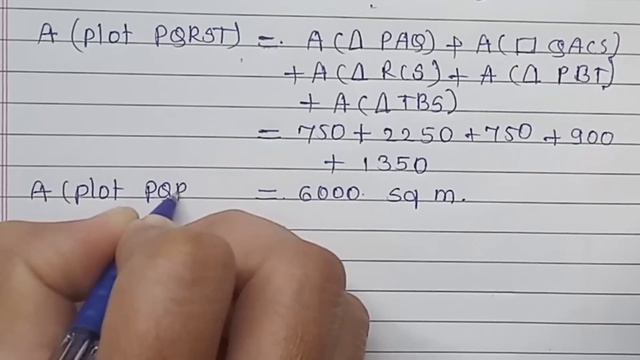 A (plot PQRST) = A(Δ PAQ) + A(□ QACS)
+ A(Δ RCS) + A(Δ PBT)
+ A(Δ TBS)
= 750 + 2250 + 750 + 900
+ 1350
A (plot PQR = 6000. sq m.